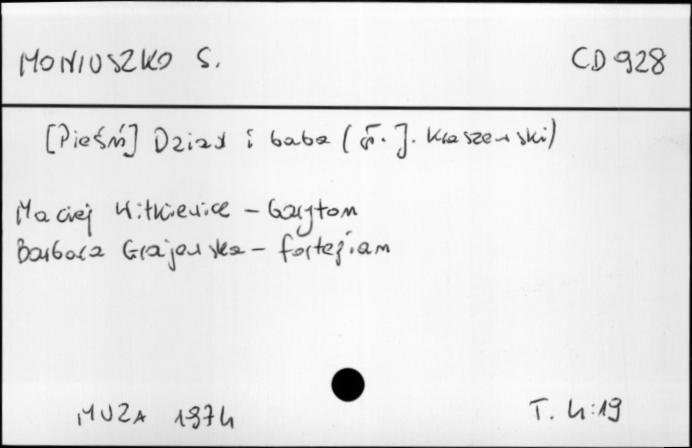 MONIUSZKO S. CD 928
[Pieśń] Dziad i baba (sł. J. Kraszewski)
Maciej Witkiewicz - baryton
Barbara Grajewska - fortepian
MUZA 1974 T. 4:19